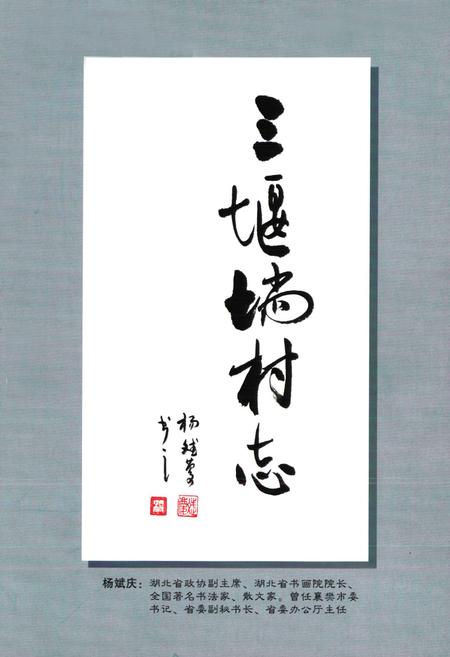 三堰端村志
杨斌庆
书之
杨斌庆：湖北省政协副主席、湖北省书画院院长、
全国著名书法家、散文家。曾任襄樊市委
书记、省委副秘书长、省委办公厅主任